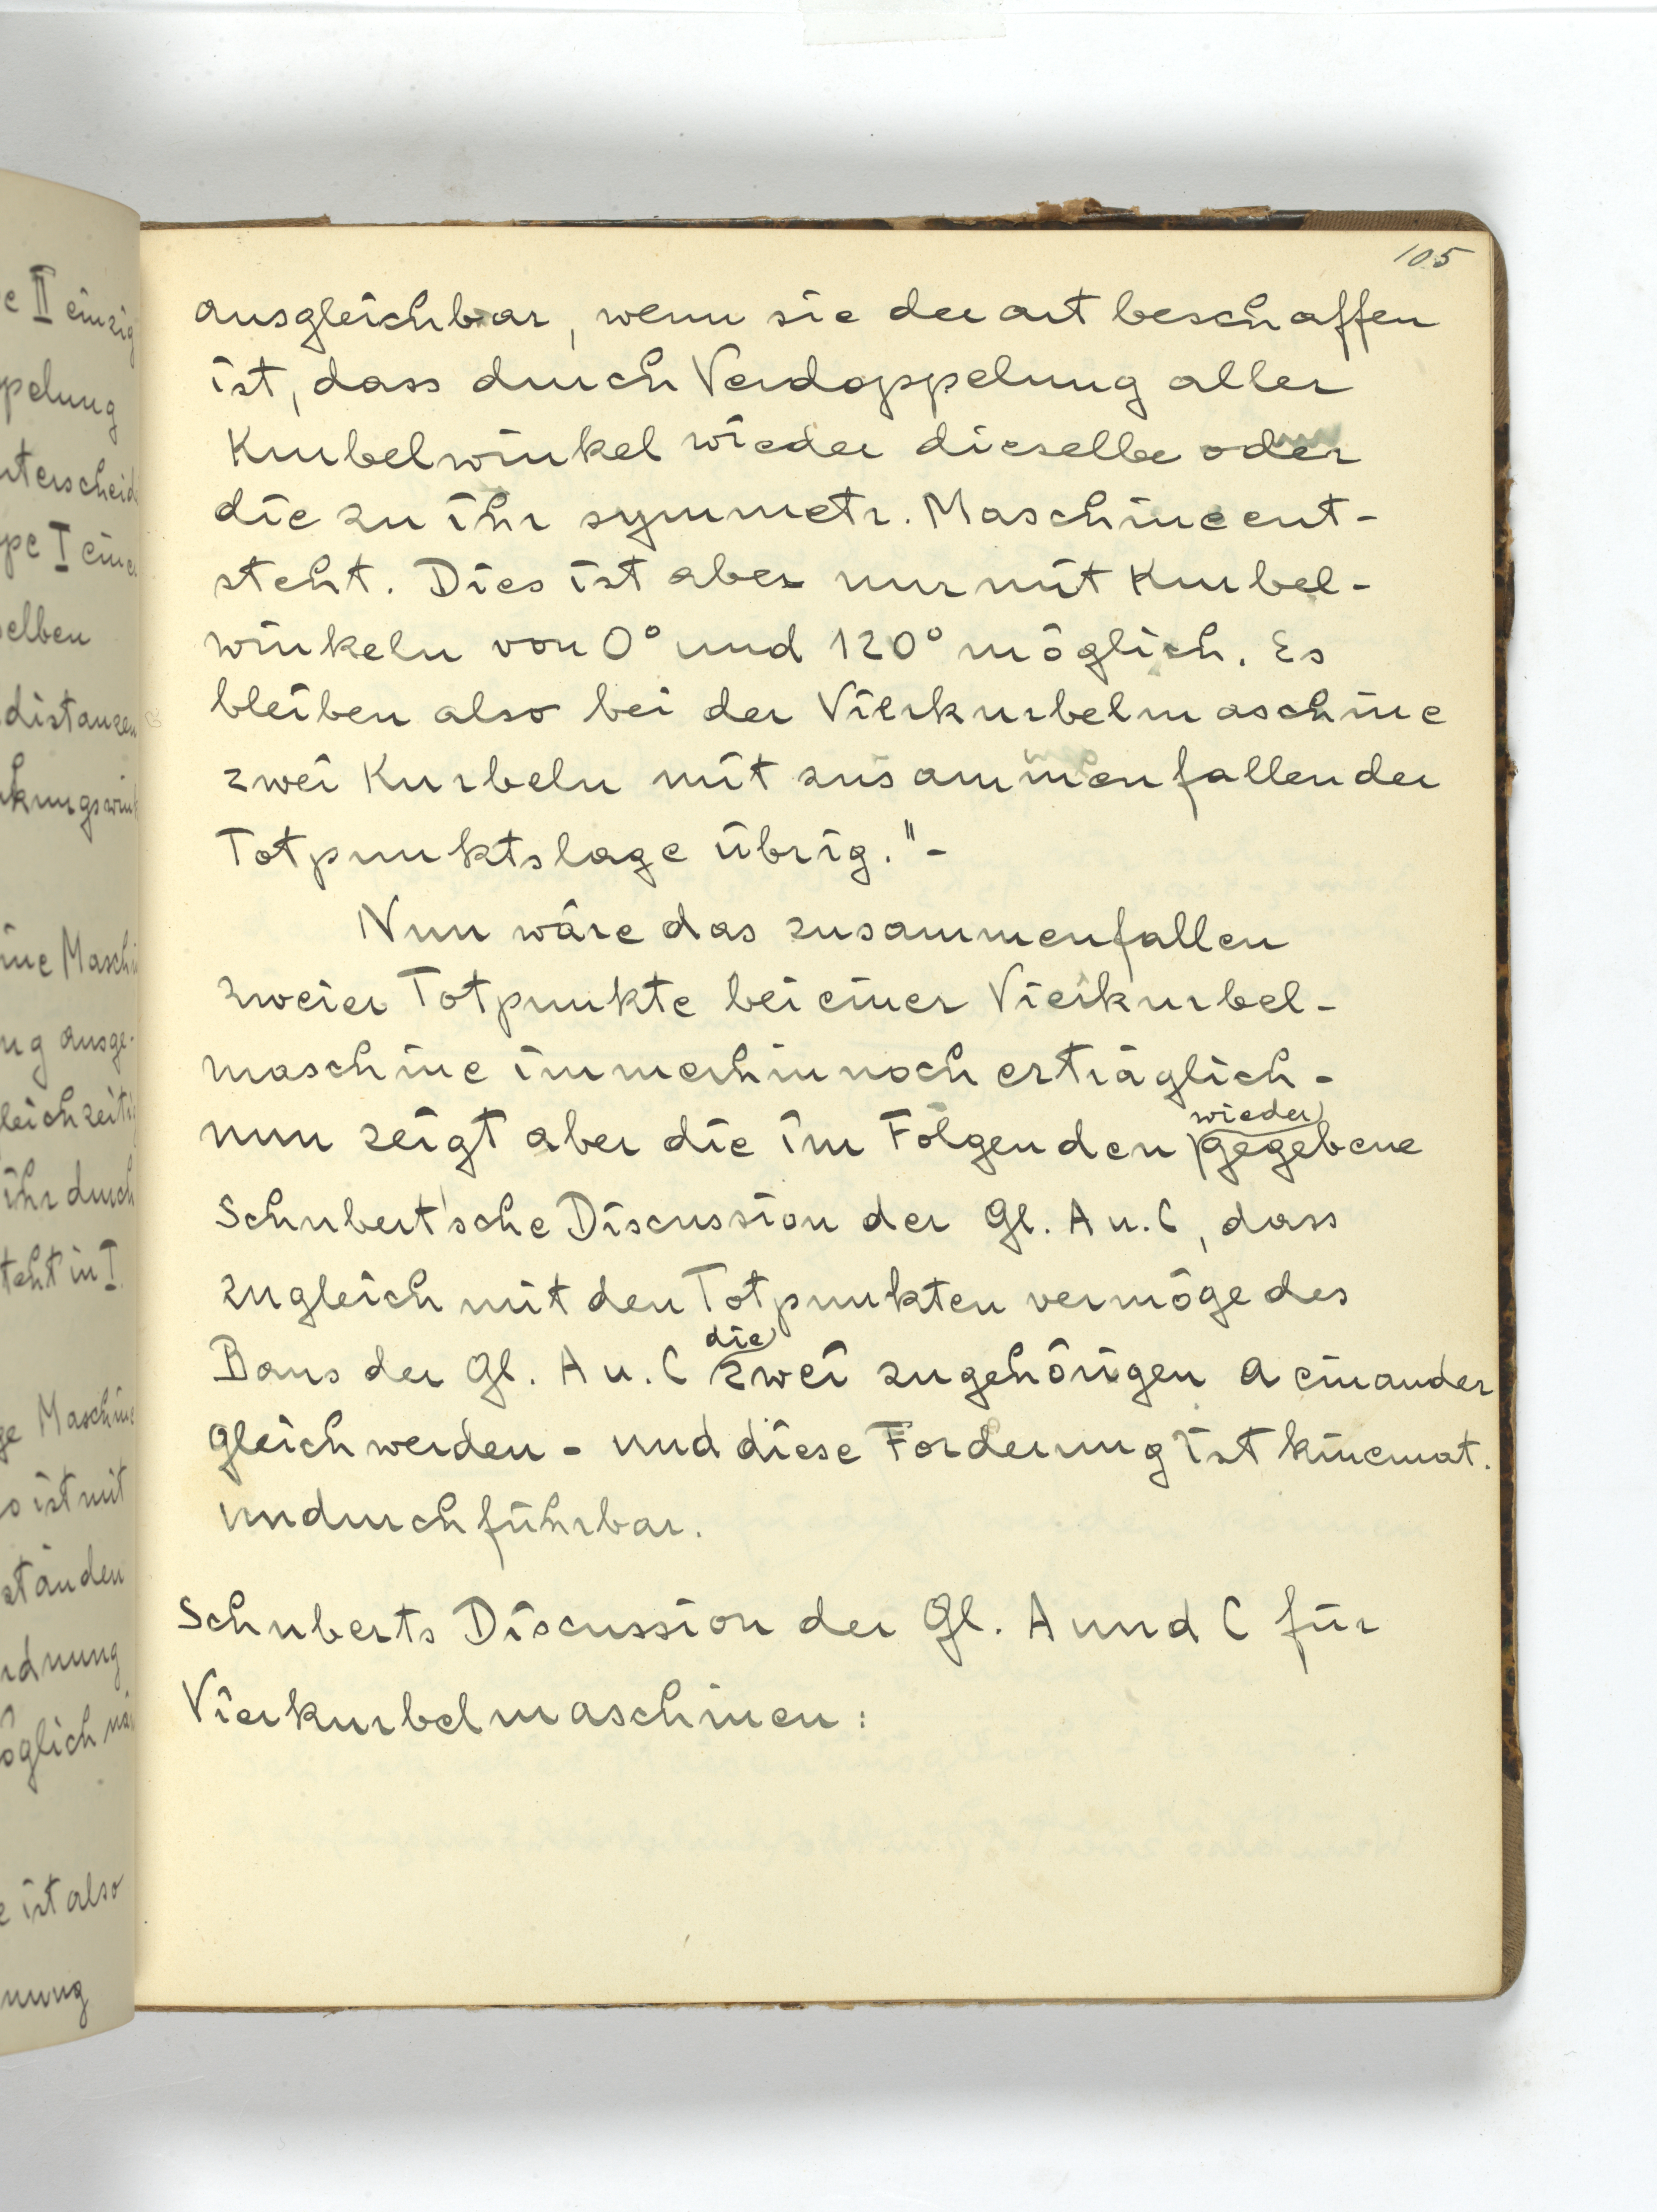 105
ausgleichbar, wenn sie derart beschaffen
ist, dass durch Verdoppelung aller
Kurbelwinkel wieder dieselbe oder
die zu ihr symmetr. Maschine ent-
steht. Dies ist aber nur mit Kurbel-
winkeln von 0° und 120° möglich. Es
bleiben also bei der Vierkurbelmaschine
zwei Kurbeln mit zusammenfallender
Totpunktslage übrig."-
Nun wäre das zusammenfallen
zweier Totpunkte bei einer Vierkurbel-
maschine immerhin noch erträglich -
wieder
nun zeigt aber die im Folgenden gegebene
Schubert'sche Discussion der Gl. A u. C, dass
zugleich mit den Totpunkten vermöge des
die
Baus der Gl. A u. C zwei zugehörigen a einander
gleich werden - und diese Forderung ist kinemat.
undurchführbar.
Schuberts Discussion der Gl. A und C für
Vierkurbelmaschinen:
e II einzig
ppelung
nterscheid
ppe I eine
selben
distanzen
nkungswink
ine Maschi
ng ausge-
leichzeiti
ihr durch
teht in I.
ge Maschine
o ist mit
ständen
rdnung
öglich
e ist also
nung